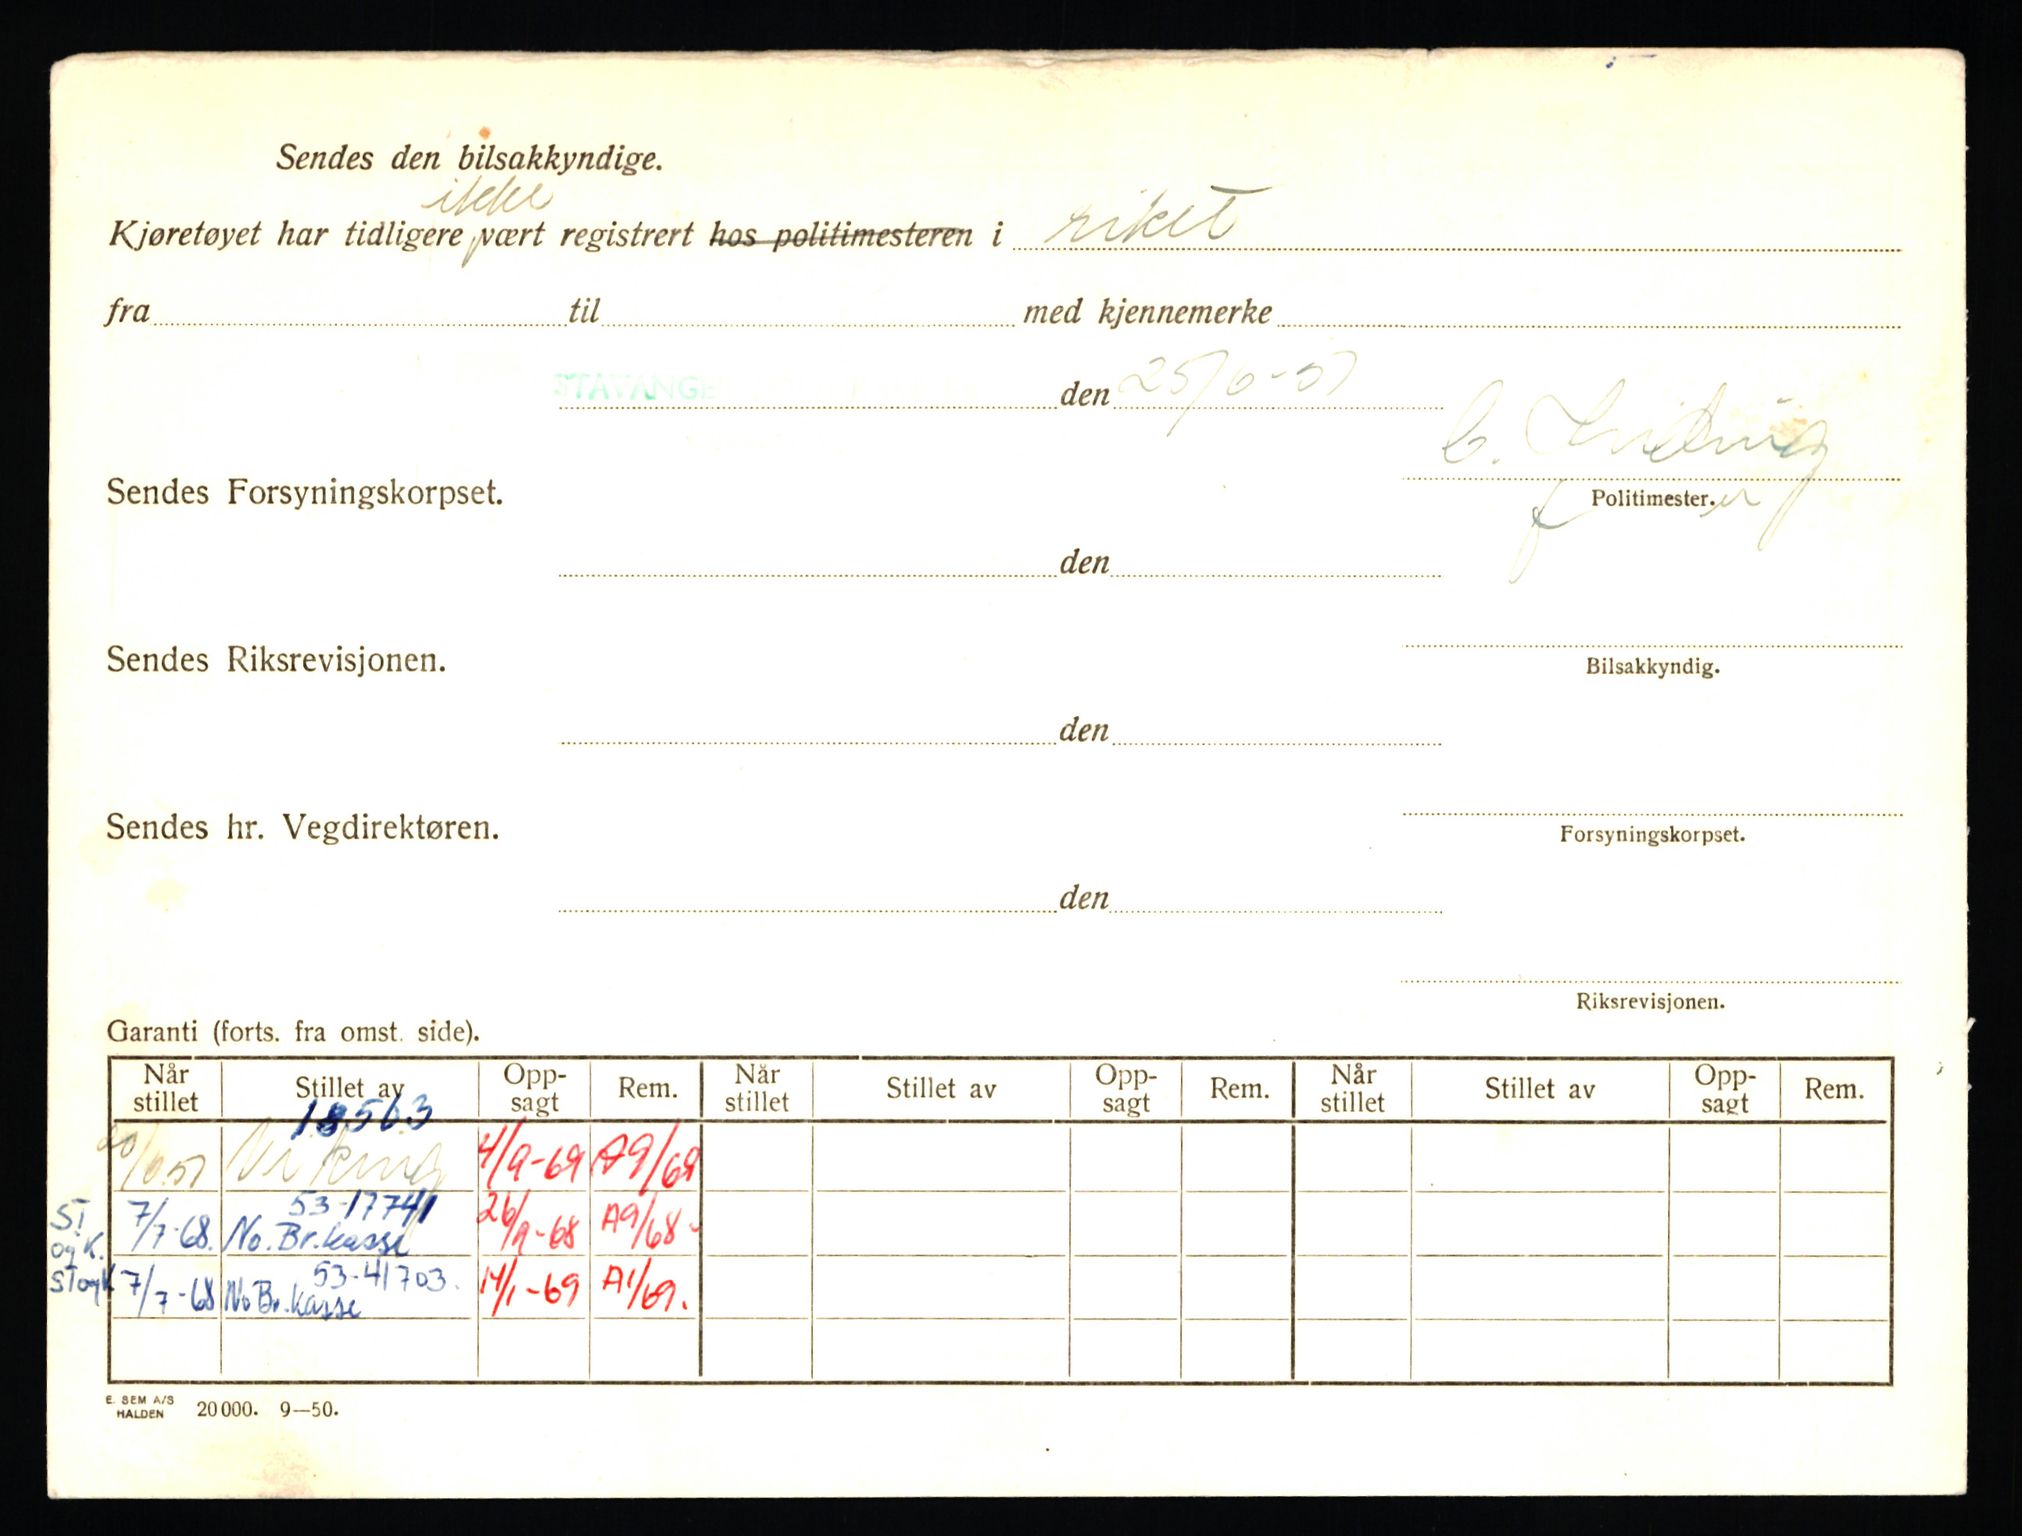 Sendes den bilsakkyndige.
ikke
Kjøretøyet har tidligere vært registrert hos politimesteren i riket
fra til med kjennemerke
STAVANGE den 25/6-51
Sendes Forsyningskorpset.
Politimester.
den
Sendes Riksrevisjonen.
Bilsakkyndig.
den
Sendes hr. Vegdirektøren.
Forsyningskorpset.
den
Riksrevisjonen.
Garanti (forts. fra omst. side).
Når stillet Stillet av Opp-sagt Rem. Når stillet Stillet av Opp-sagt Rem. Når stillet Stillet av Opp-sagt Rem.
18563
Viking 4/9-69 A9/69
ST og K. 7/7-68. 53-17741 No. Br.kasse 26/9-68 A9/68-
ST og K 7/7-68 53-41703. No Br.kasse 14/1-69 A1/69.
E. SEM A/S
HALDEN 20000. 9—50.